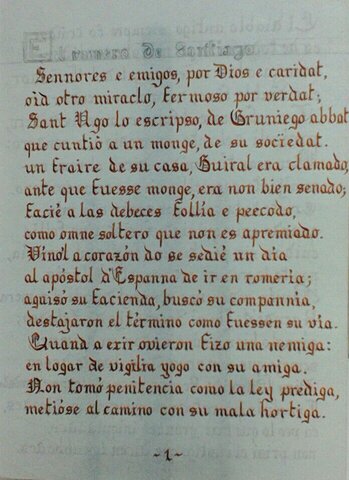 El romero de Santiago
Sennores e emigos, por Dios e caridat,
oid otro miraclo, fermoso por verdat;
Sant Ugo lo escripso, de Gruniego abbat
que cuntió a un monge, de su socïedat.
un fraire de su casa, Guiral era clamado,
ante que fuesse monge, era non bien senado;
facié a las debeces follía e peecodo,
como omne soltero que non es apremiado.
Vínol'a corazón do se sedié un día
al apóstol d'Espanna de ir en romería;
aguisó su facienda, buscó su compannía,
destajaron el término como fuessen su vía.
Quand a exir ovieron fizo una nemiga:
en logar de vigilia yogo con su amiga.
Non tomó penitencia como la ley prediga,
metióse al camino con su mala hortiga.
~1~